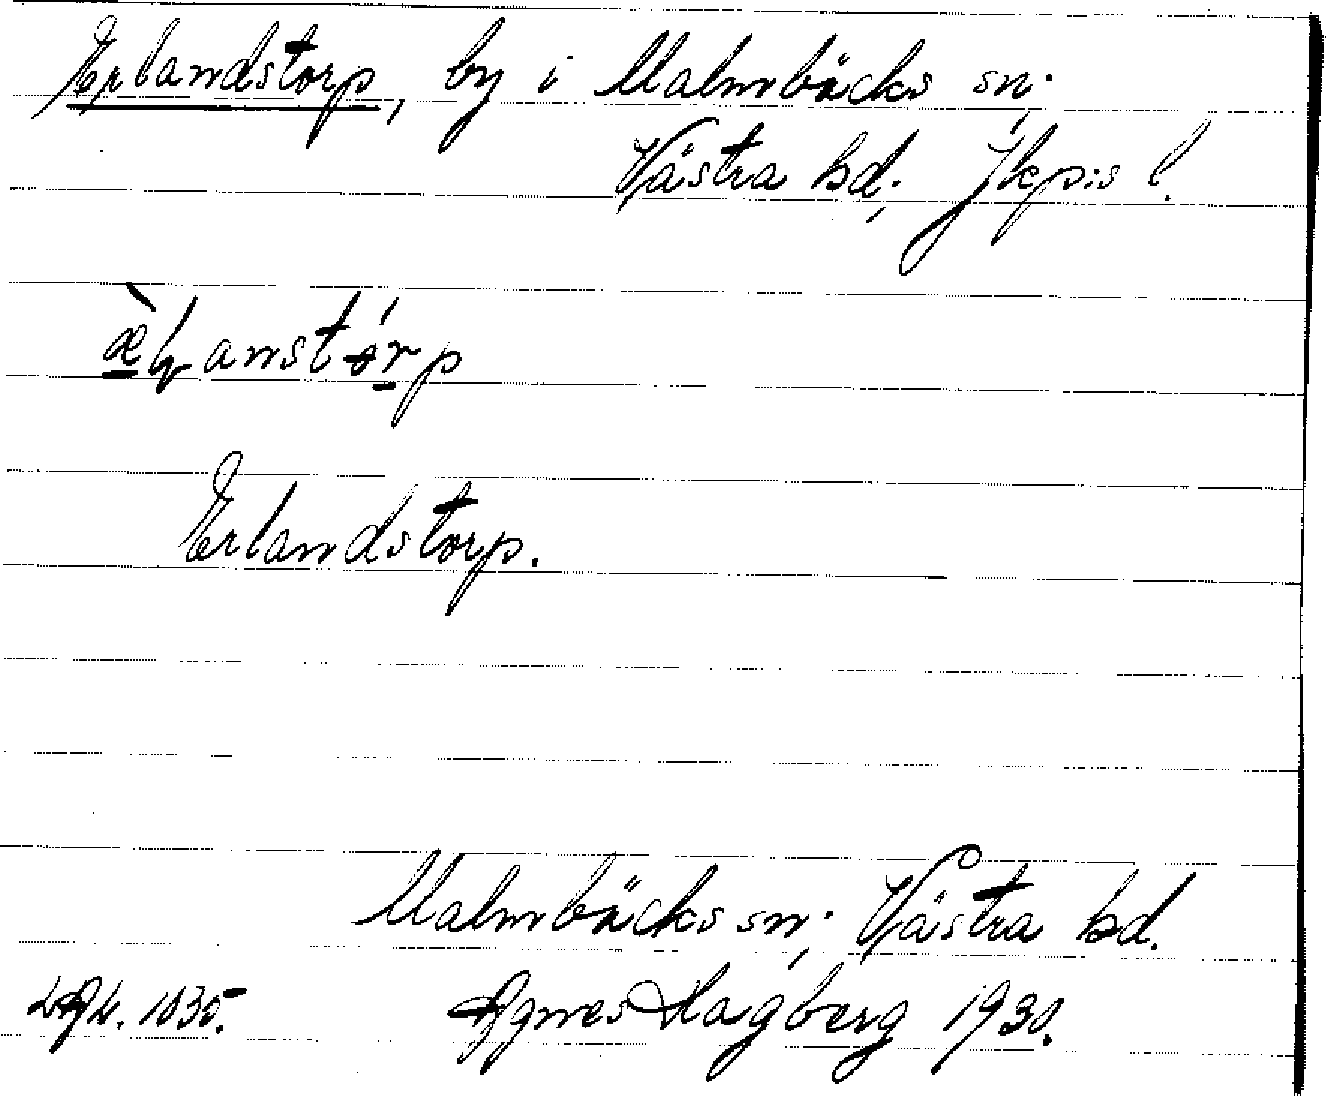 Erlandstorp, by i Malmbäcks sn;
Västra hd; Jkpis l.
Erlandstorp.
Malmbäcks sn; Västra hd.
1035. Agnes Hagberg 1930.